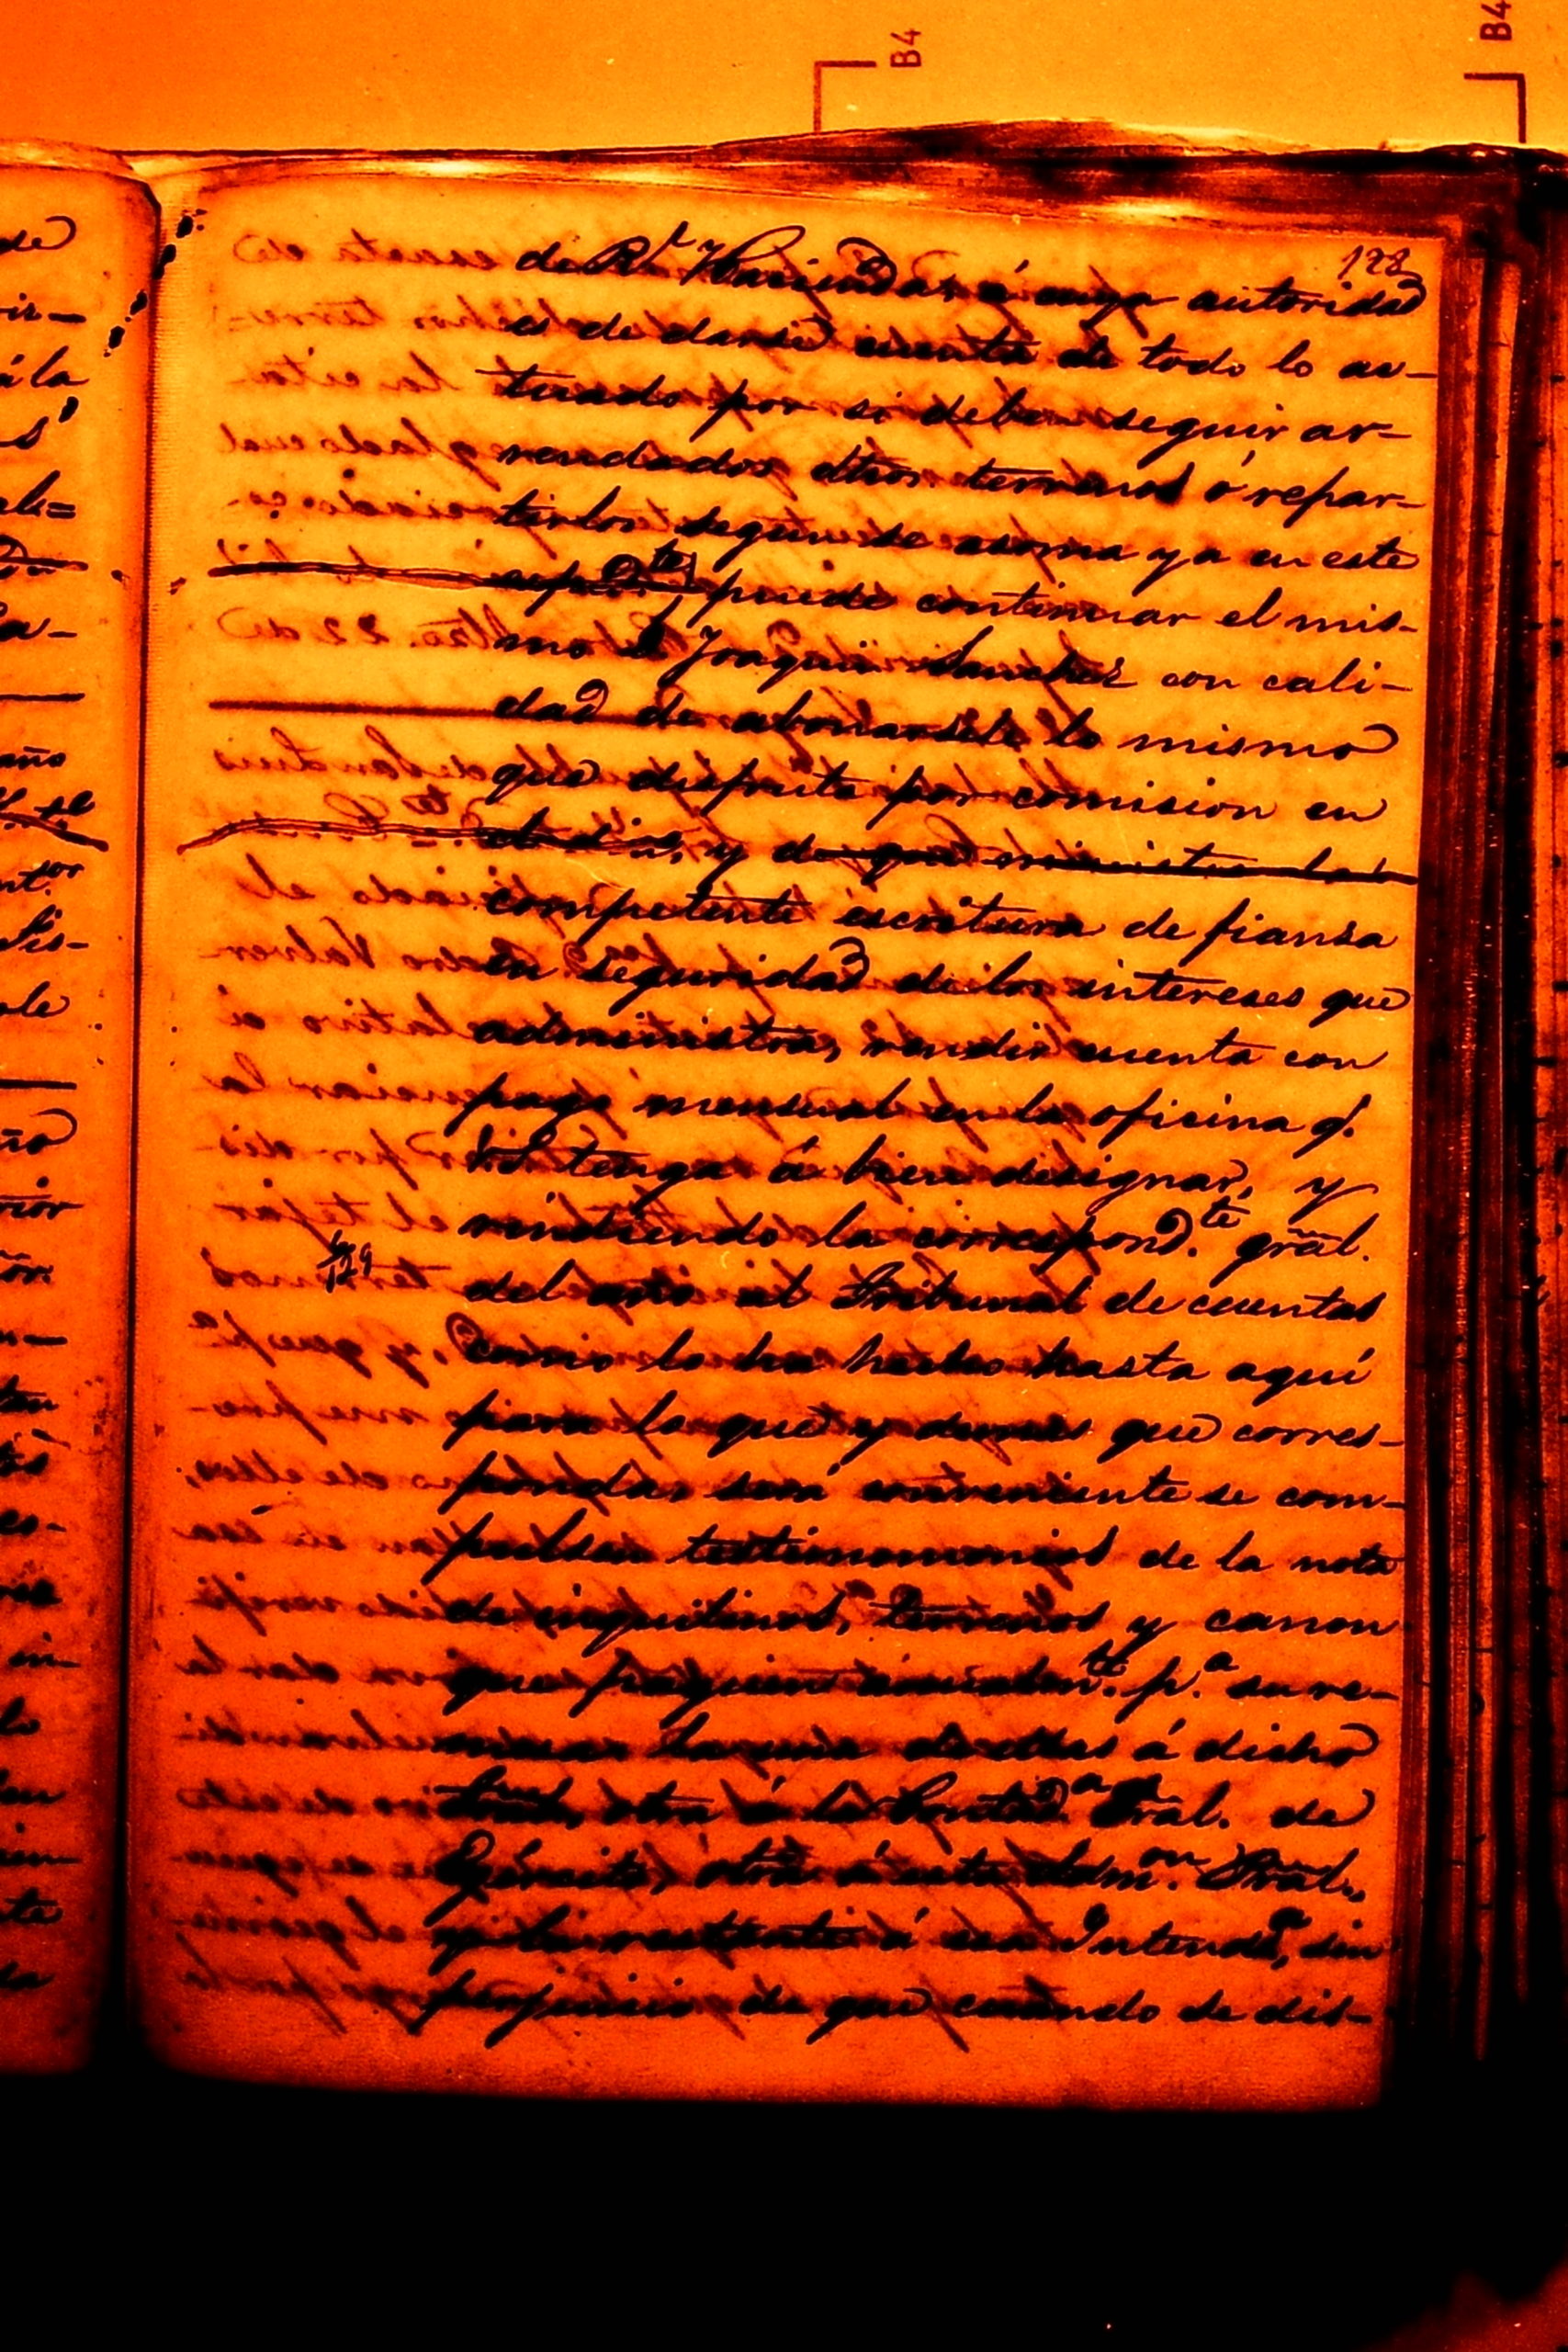 B4
B4
128
de Rl. Hacienda á cuya autoridad
es de darse cuenta de todo lo ac-
tuado por si deben seguir ar-
rendados dhos terrenos ó repar-
tirlos segun se asoma ya en este
expdte., puede continuar el mis-
mo D. Joaquin Sanchez con cali-
dad de abonarsele lo mismo
que disfruta por comision en
el dia, y de que
competente escritura de fiansa
en seguridad de los intereses que
administra, rendir cuenta con
pago mensual en la oficina q.
VS. tenga á bien designar, y
rindiendo la correspond.te gr̃al.
del año al Tribunal de cuentas
como lo ha hecho hasta aquí
para lo que y demas que corres-
ponda, será conveniente se com-
pulsen testimonios de la nota
de inquilinos, terrenos y canon
que paguen p.a su re-
una de ellas á dicho
tral., otra á la Contad.a Gral. de
Egército, otra á esta Adm.on Gral.,
y la restante á esa Intend.a, sin
perjuicio de que cuando se dis-
129